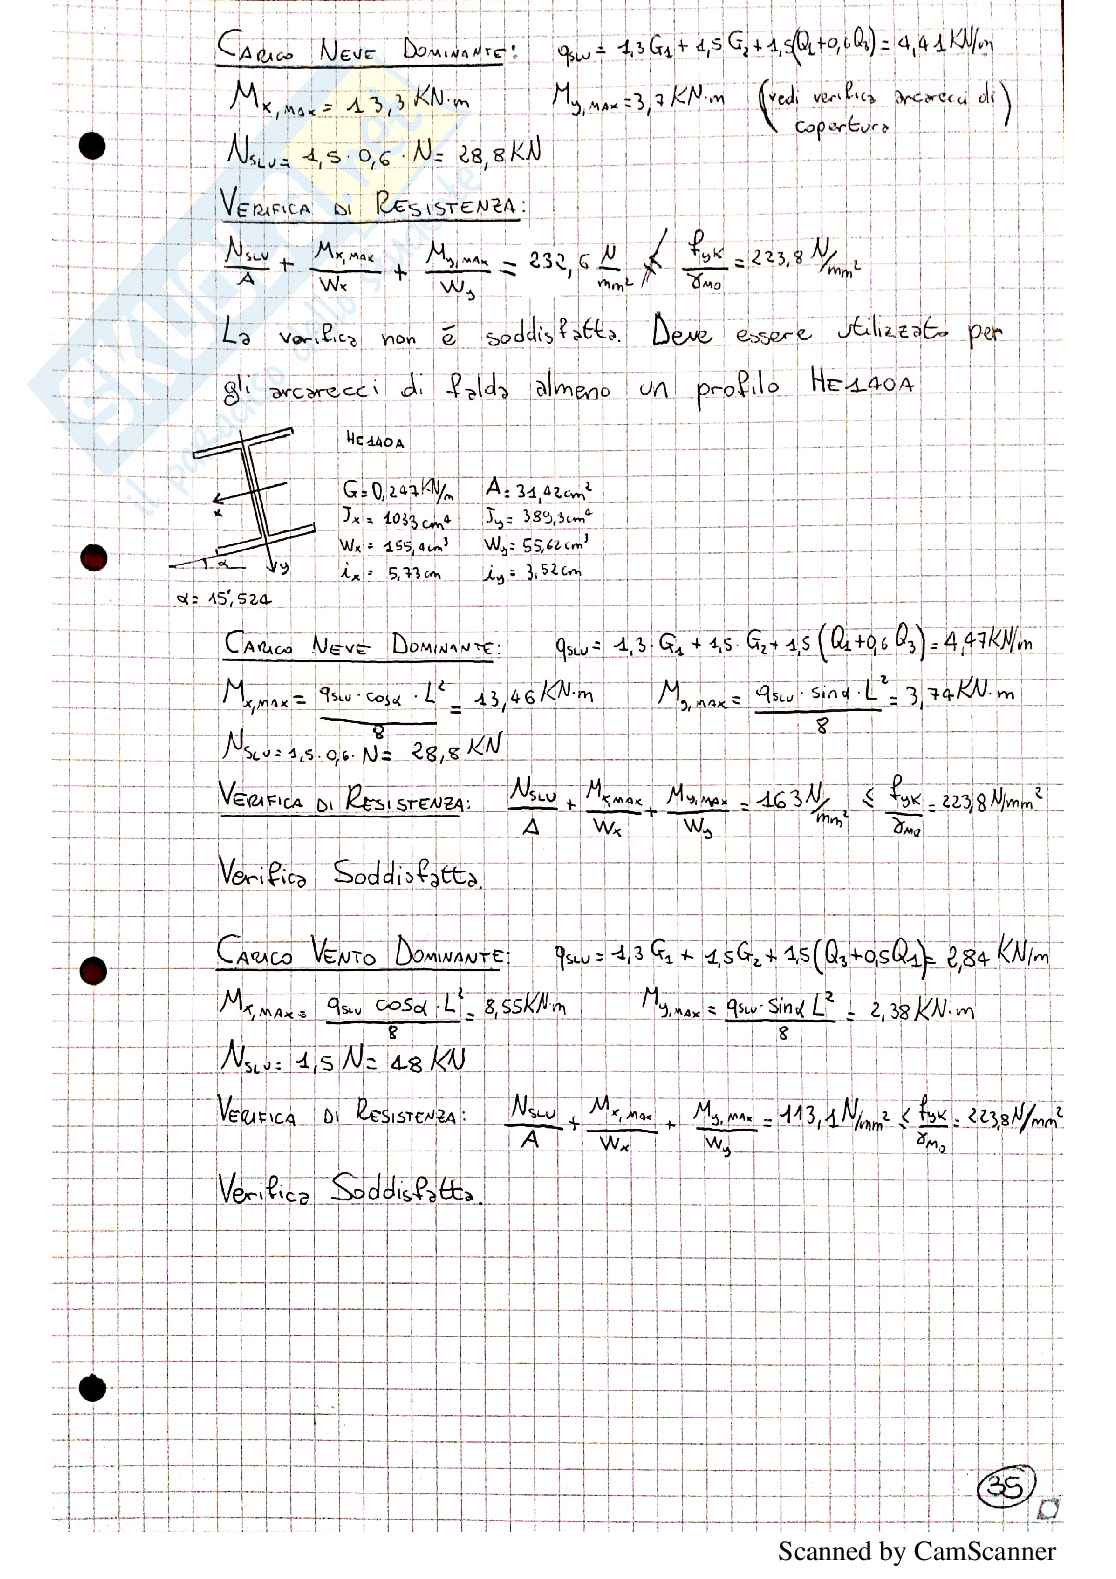 CARICO NEVE DOMINANTE: qSLU = 1,3 G1 + 1,5 G2 + 1,5(Q1+0,6 Q3) = 4,41 KN/m
Mx,MAX = 13,3 KN·m My,MAX = 3,7 KN·m (vedi verifica arcarecci di copertura)
NSLU = 1,5 · 0,6 · N = 28,8 KN
VERIFICA DI RESISTENZA:
NSLU/A + Mx,MAX/Wx + My,MAX/Wy = 232,6 N/mm² ≰ fyk/γM0 = 223,8 N/mm²
La verifica non è soddisfatta. Deve essere utilizzato per
gli arcarecci di falda almeno un profilo HE140A
HE140A
G = 0,247 KN/m A = 31,42 cm²
Jx = 1033 cm⁴ Jy = 389,3 cm⁴
x
Wx = 155,4 cm³ Wy = 55,62 cm³
α y
ix = 5,73 cm iy = 3,52 cm
α = 15°,524
CARICO NEVE DOMINANTE: qSLU = 1,3 · G1 + 1,5 · G2 + 1,5 (Q1+0,6 Q3) = 4,47 KN/m
Mx,MAX = qSLU · cosα · L²/8 = 13,46 KN·m My,MAX = qSLU · sinα · L²/8 = 3,74 KN·m
NSLU = 1,5 · 0,6 · N = 28,8 KN
VERIFICA DI RESISTENZA: NSLU/A + Mx,MAX/Wx + My,MAX/Wy = 163 N/mm² ≤ fyk/γM0 = 223,8 N/mm²
Verifica Soddisfatta.
CARICO VENTO DOMINANTE: qSLU = 1,3 G1 + 1,5 G2 + 1,5(Q3+0,5Q1) = 2,84 KN/m
Mx,MAX = qSLU cosα · L²/8 = 8,55 KN·m My,MAX = qSLU · sinα L²/8 = 2,38 KN·m
NSLU = 1,5 N = 48 KN
VERIFICA DI RESISTENZA: NSLU/A + Mx,MAX/Wx + My,MAX/Wy = 113,1 N/mm² ≤ fyk/γM0 = 223,8 N/mm²
Verifica Soddisfatta.
35
Scanned by CamScanner